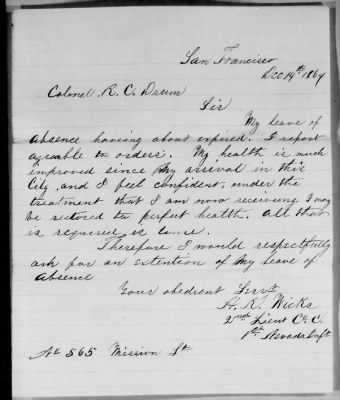 San Francisco
Dec 14th 1864
Colonel R. C. Drum
Sir
My leave of
absence having about expired. I report
agreable to orders. My health is much
improved since My arrival in this
City, and I feel confident, under the
treatment that I am now receiving I may
be restored to perfect health. All that
is required is time.
Therefore I would respectfully
ask for an extention of My leave of
absence
Your obedient Servt
H. K. Wicks
2nd Lieut Co. C.
1st Nevada Inft
No 565 Mission St